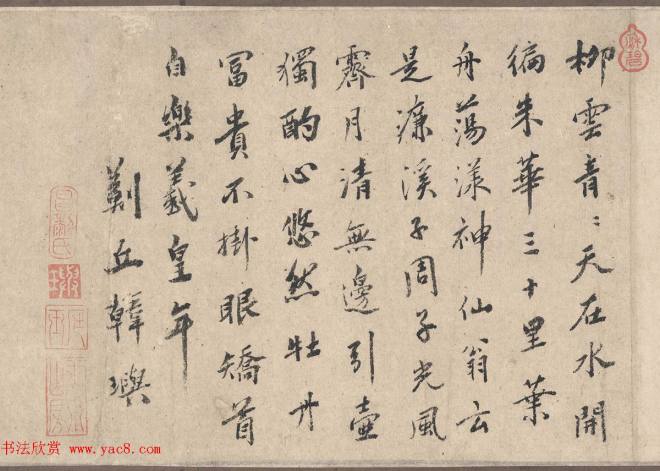 柳雲青〻天在水開
徧朱華三十里葉
舟蕩漾神仙翁云
是濂溪子周子光風
霽月清無邊引壺
獨酌心悠然牡丹
富貴不掛眼矯首
自樂羲皇年
薊丘韓璵
书法欣赏 www.yac8.com